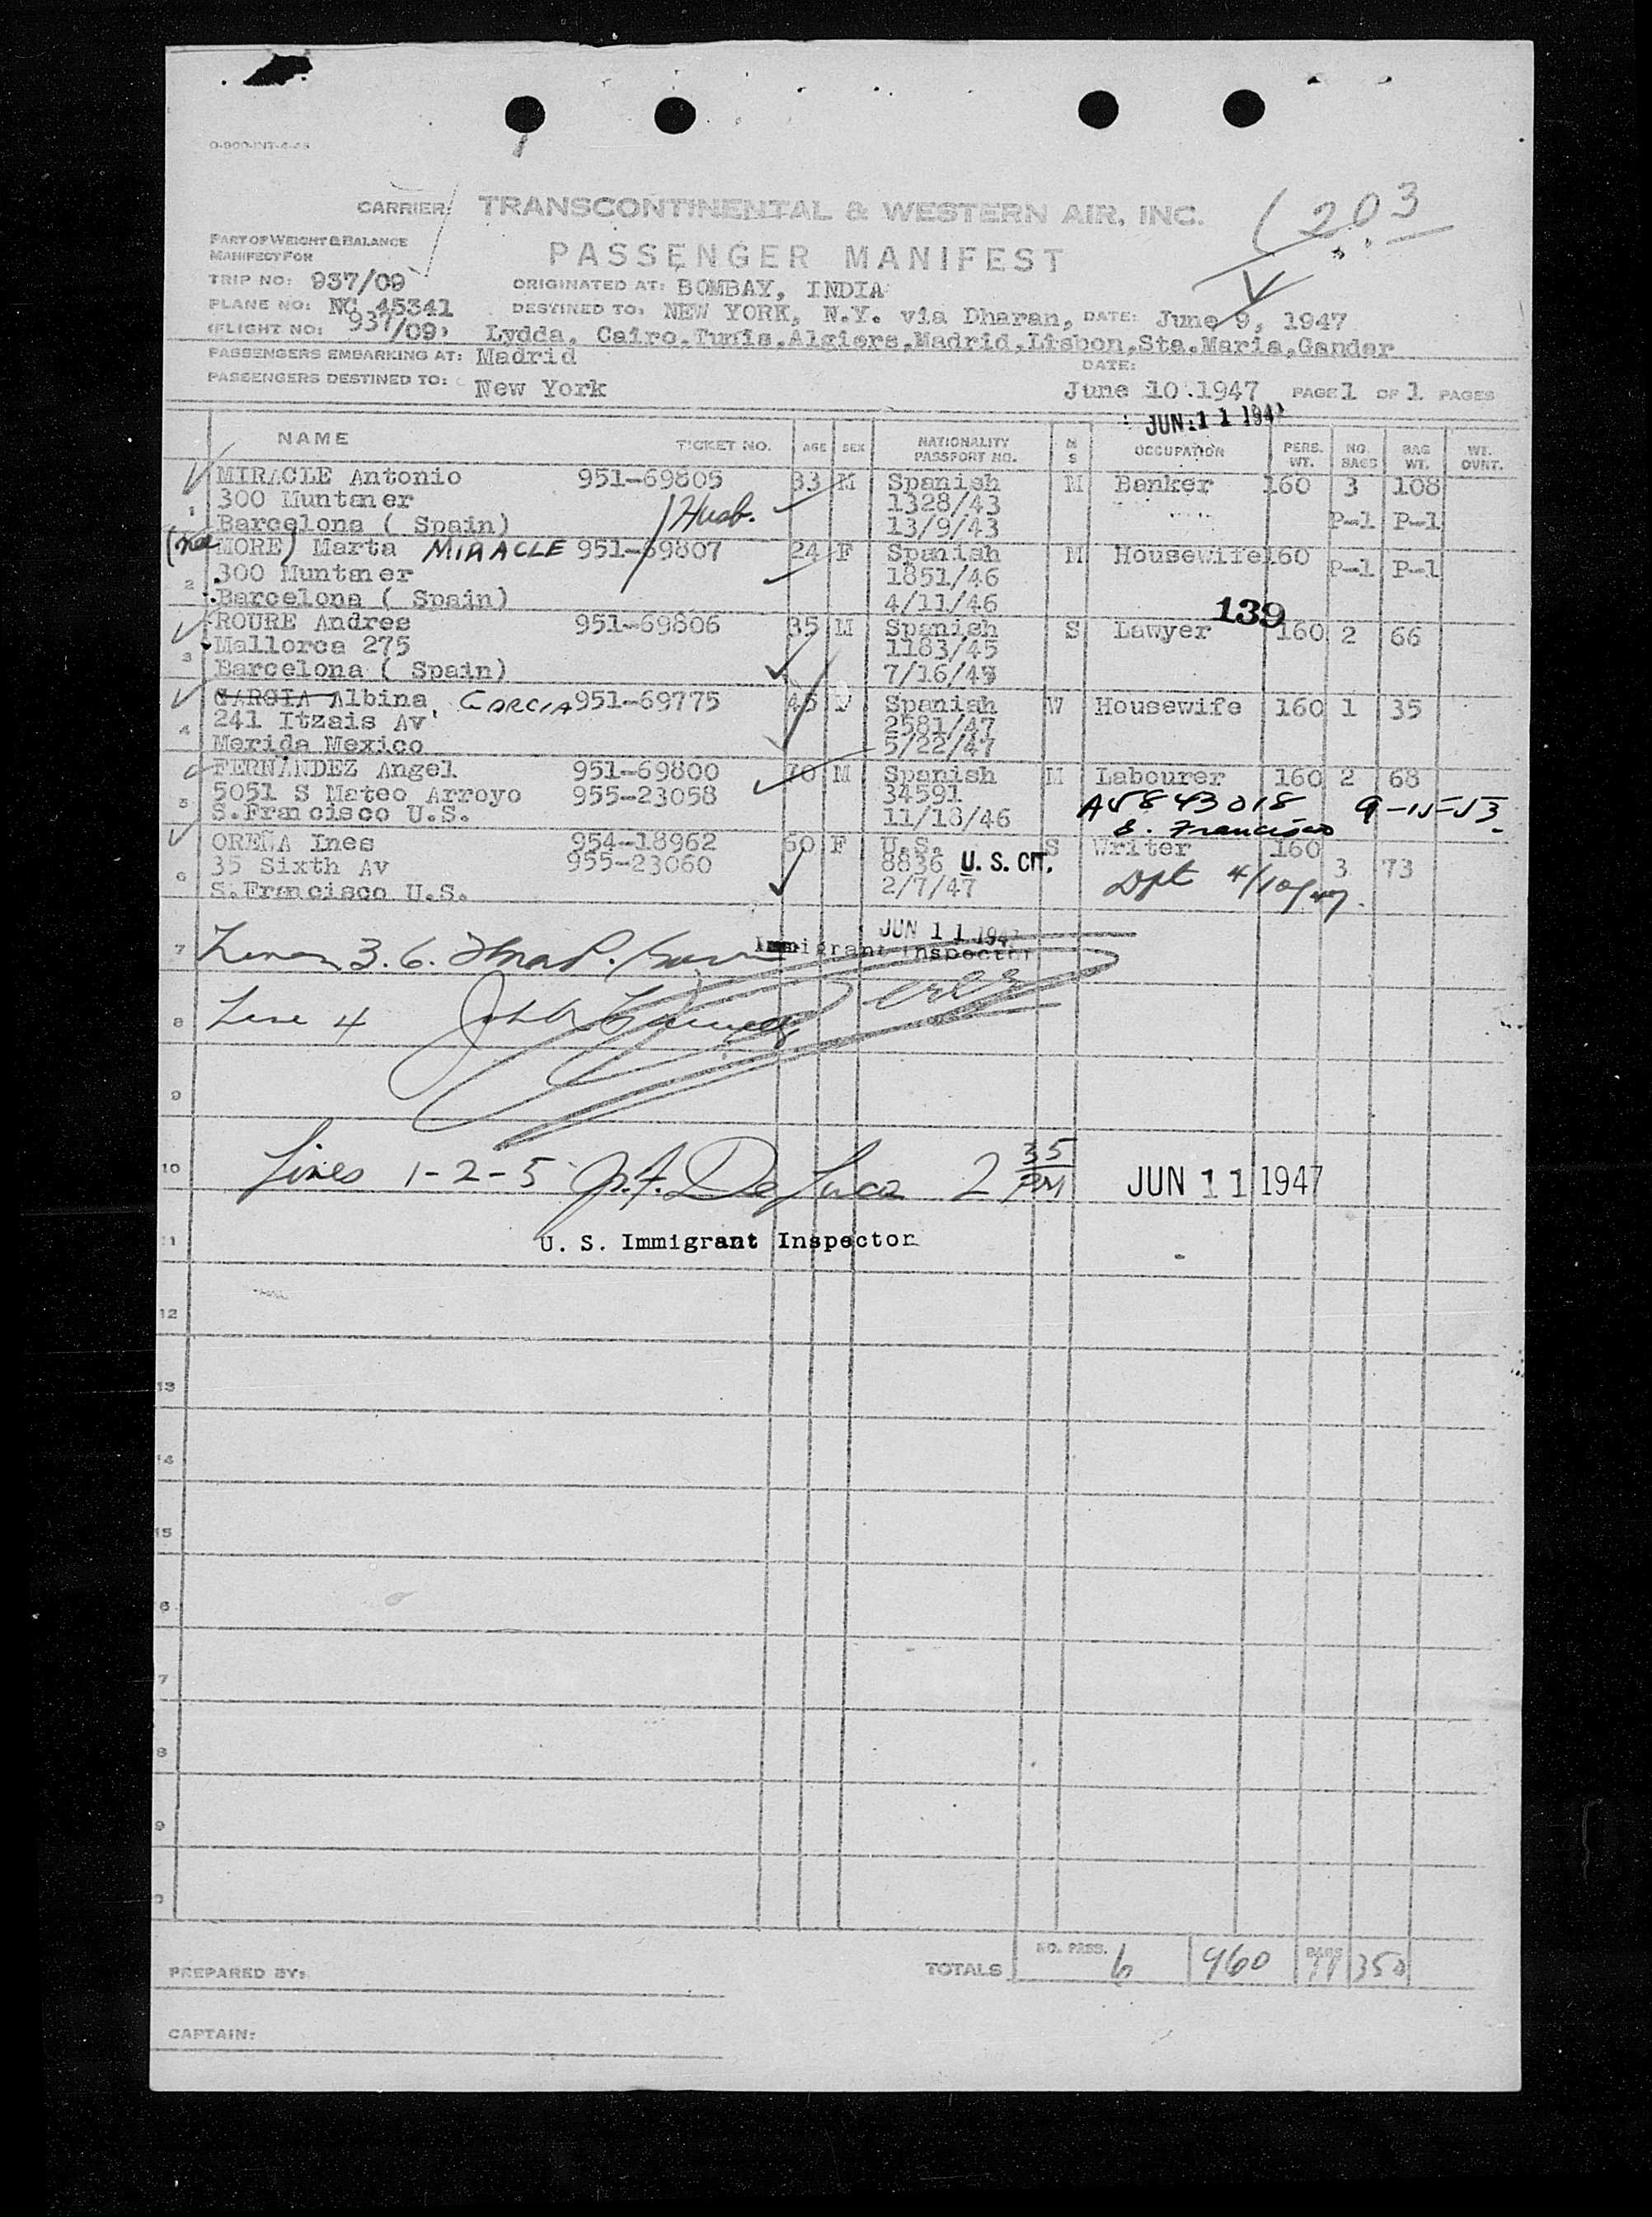 O-900-INT-4-46
CARRIER: TRANSCONTINENTAL & WESTERN AIR, INC. 203
PART OF WEIGHT & BALANCE
MANIFEST FOR
PASSENGER MANIFEST
TRIP NO: 937/09 ORIGINATED AT: BOMBAY, INDIA
PLANE NO: NC 45341 DESTINED TO: NEW YORK, N.Y. via Dharan, DATE: June 9, 1947
(FLIGHT NO: 937/09) Lydda, Cairo,Tunis,Algiers,Madrid,Lisbon,Sta.Maria,Gander
PASSENGERS EMBARKING AT: Madrid DATE:
PASSENGERS DESTINED TO: New York June 10 1947 PAGE 1 OF 1 PAGES
JUN 11 1947
NAME TICKET NO. AGE SEX NATIONALITY PASSPORT NO. M S OCCUPATION PERS. WT. NO. BAGS BAG WT. WT. OVNT.
1 MIRACLE Antonio 951-69805 33 M Spanish M Banker 160 3 108
300 Muntaner Husb. 1328/43
Barcelona ( Spain) 13/9/43 P-1 P-1
(nee MORE) Marta MIRACLE 951-69807 24 F Spanish M Housewife 160 P-1 P-1
2 300 Muntaner 1851/46
Barcelona ( Spain) 4/11/46
139
ROURE Andres 951-69806 35 M Spanish S Lawyer 160 2 66
3 Mallorca 275 1183/45
Barcelona ( Spain) 7/16/45
GARCIA Albina GARCIA 951-69775 45 Spanish W Housewife 160 1 35
4 241 Itzais Av 2581/47
Merida Mexico 5/22/47
FERNANDEZ Angel 951-69800 70 M Spanish M Labourer 160 2 68
5 5051 S Mateo Arroyo 955-23058 34591 A5843018 9-15-53
S.Francisco U.S. 11/18/46 S. Francisco
OREÑA Ines 954-18962 60 F U.S. S Writer 160
6 35 Sixth Av 955-23060 8836 U. S. CIT. 3 73
S.Francisco U.S. 2/7/47 Dpt 4/10/47.
JUN 11 1947
7 Lines 3. 6. Immigrant Inspector
8 Line 4
9
10 Lines 1-2-5 De Luca 2 35 PM JUN 11 1947
11 U. S. Immigrant Inspector
12
13
14
15
6
7
8
9
0
TOTALS NO. PASS. 6 960 BAGS 11 350
PREPARED BY:
CAPTAIN: